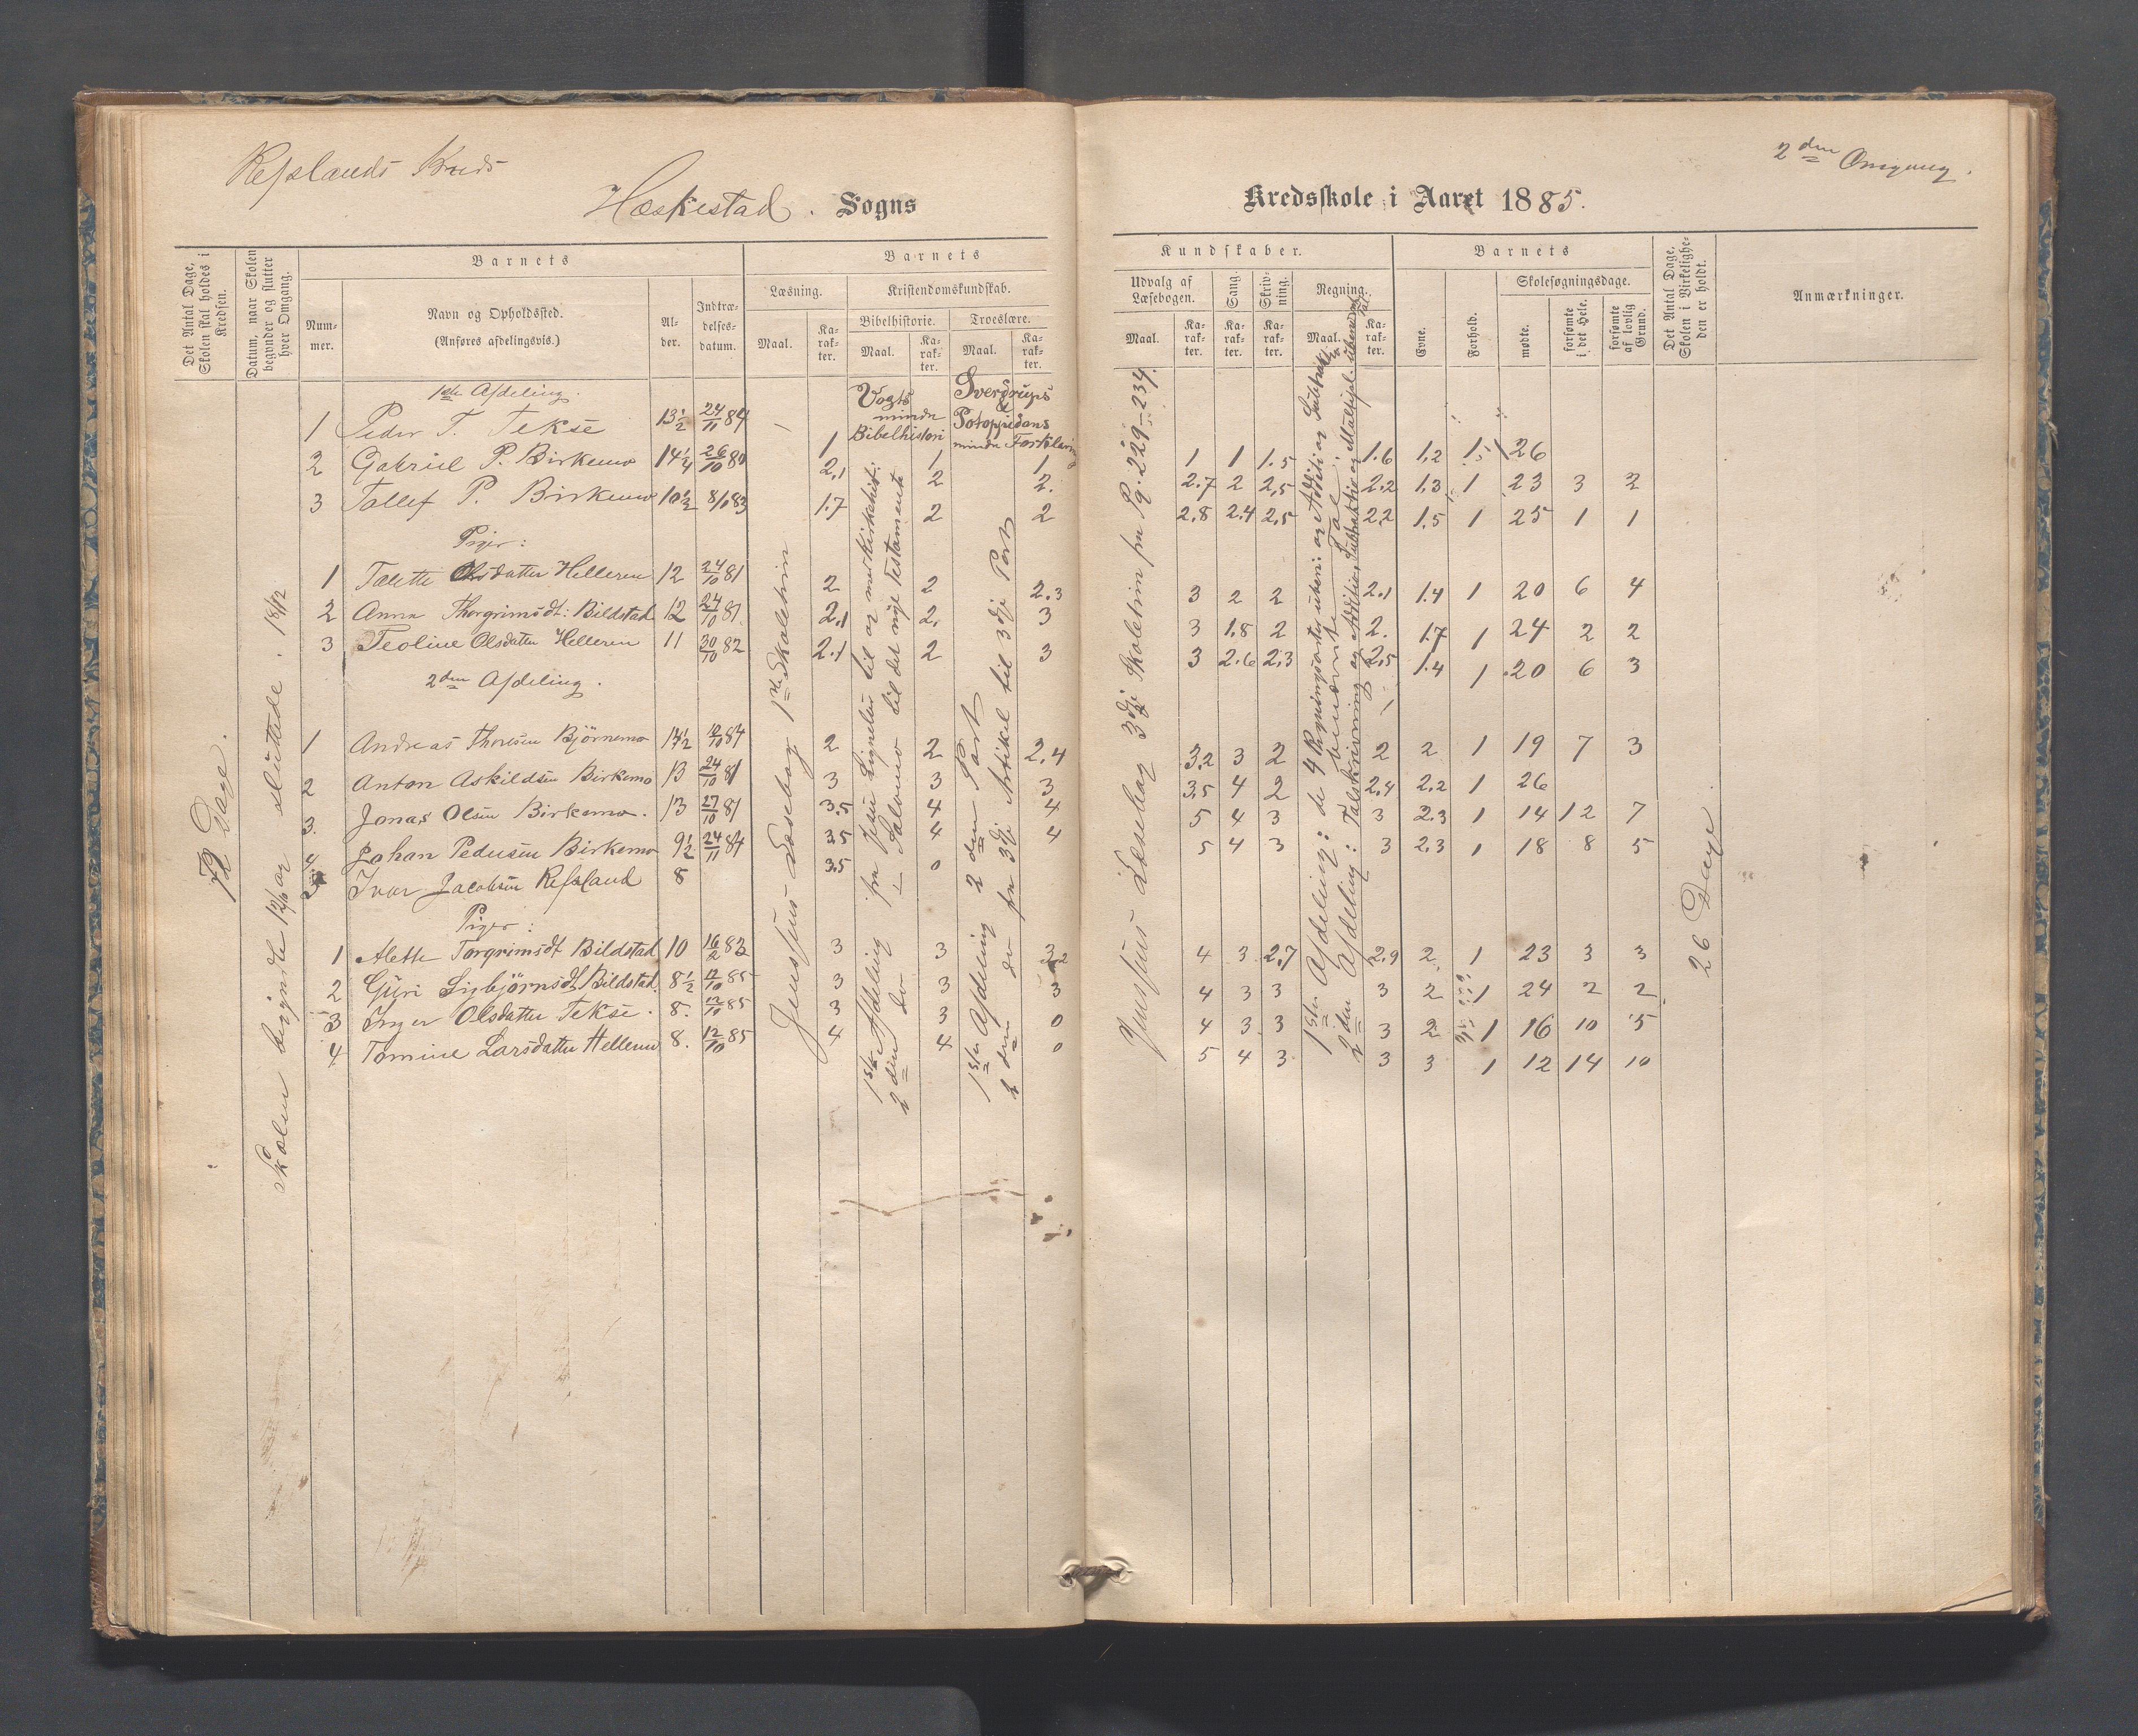 Refslands Kreds
2den Omgang.
Hæskestad. Sogns
Kredsskole i Aaret 1885.
Det Antal Dage, Skolen skal holdes i Kredsen.
Datum, naar Skolen begynder og slutter hver Omgang.
Barnets
Num-mer.
Navn og Opholdssted. (Anføres afdelingsvis.)
Al-der.
Indtræ-delses-datum.
Barnets
Læsning.
Maal.
Ka-rak-ter.
Kristendomskundskab.
Bibelhistorie.
Maal.
Ka-rak-ter.
Troeslære.
Maal.
Ka-rak-ter.
Kundskaber.
Udvalg af Læsebogen.
Maal.
Ka-rak-ter.
Sang.
Ka-rak-ter.
Skriv-ning.
Ka-rak-ter.
Regning.
Maal.
Ka-rak-ter.
Barnets
Evne.
Forhold.
Skolesøgningsdage.
mødte.
forsømte i det Hele.
forsømte af lovlig Grund.
Det Antal Dage, Skolen i Virkelighe-den er holdt.
Anmærkninger.
72 Dage.
Skolen begyndte 12/10 og sluttede 18/12
1ste Afdeling.
1 Peder T. Tekse 13½ 24/11 84 1 1 1 1 1 1.5 1.6 1.2 1.5 26
2 Gabriel P. Birkemo 14¼ 26/10 80 2.1 2 2. 2.7 2 2.5 2.2 1.3 1 23 3 2
3 Tollef P. Birkemo 10½ 8/10 83 1.7 2 2 2.8 2.4 2.5 2.2 1.5 1 25 1 1
Piger:
1 Talette Olsdatter Helleren 12 24/10 81 2 2 2.3 3 2 2 2.1 1.4 1 20 6 4
2 Anna Thorgrimsdt: Bildstad 12 24/10 81 2.1 2. 3 3 1.8 2 2. 1.7 1 24 2 2
3 Teoline Olsdatter Helleren 11 30/10 82 2.1 2 3 3 2.6 2.3 2.5 1.4 1 20 6 3
2den Afdeling.
1 Andreas Thoresen Björnemo 14½ 12/10 84 2 2 2.4 3.2 3 2 2 2 1 19 7 3
2 Anton Askildsen Birkemo 13 24/10 81 3 3 3 3.5 4 2 2.4 2.2 1 26
3. Jonas Olsen Birkemo. 13 27/10 81 3.5 4 4 5 4 3 3 2.3 1 14 12 7
4 Johan Pedersen Birkemo 9½ 24/11 84 3.5 4 4 5 4 3 3 2.3 1 18 8 5
Ivar Jacobsen Refsland 8 3.5 0
Piger:
1 Alette Torgrimsdt Bildstad 10 16/2 83 3 3 3.2 4 3 2.7 2.9 2 1 23 3 3
2 Guri Sigbjörnsdt Bildstad. 8½ 12/10 85 3 3 3 4 3 3 3 2 1 24 2 2
3 Inger Olsdatter Tekse. 8. 12/10 85 3 3 0 4 3 3 3 2 1 16 10 5
4 Tomine Larsdatter Helleren 8. 12/10 85 4 4 0 5 4 3 3 3 1 12 14 10
Jensenius Læsebog 1ste Skoletrin
Vogts mindre Bibelhistori
1ste Afdeling fra Jesu Lignelser til og med Kirkehist:
2den do Salomo til det nye testamente
Sverdrups Potoppidans mindre Forklaring
1ste Afdeling 2den Part
2den do fra 3dje Artikel til 3dje Part
Læsebog 3dje Skoletrin fra Pg. 229-234.
1ste Afdeling: de 4 Regningsarter uben: og Additi og Subtrak. benævnte Tal.
2den Afdeling: Talskrivning og Addition, Subtraktio og Multipl. ubenævnte Tal
26 Dage